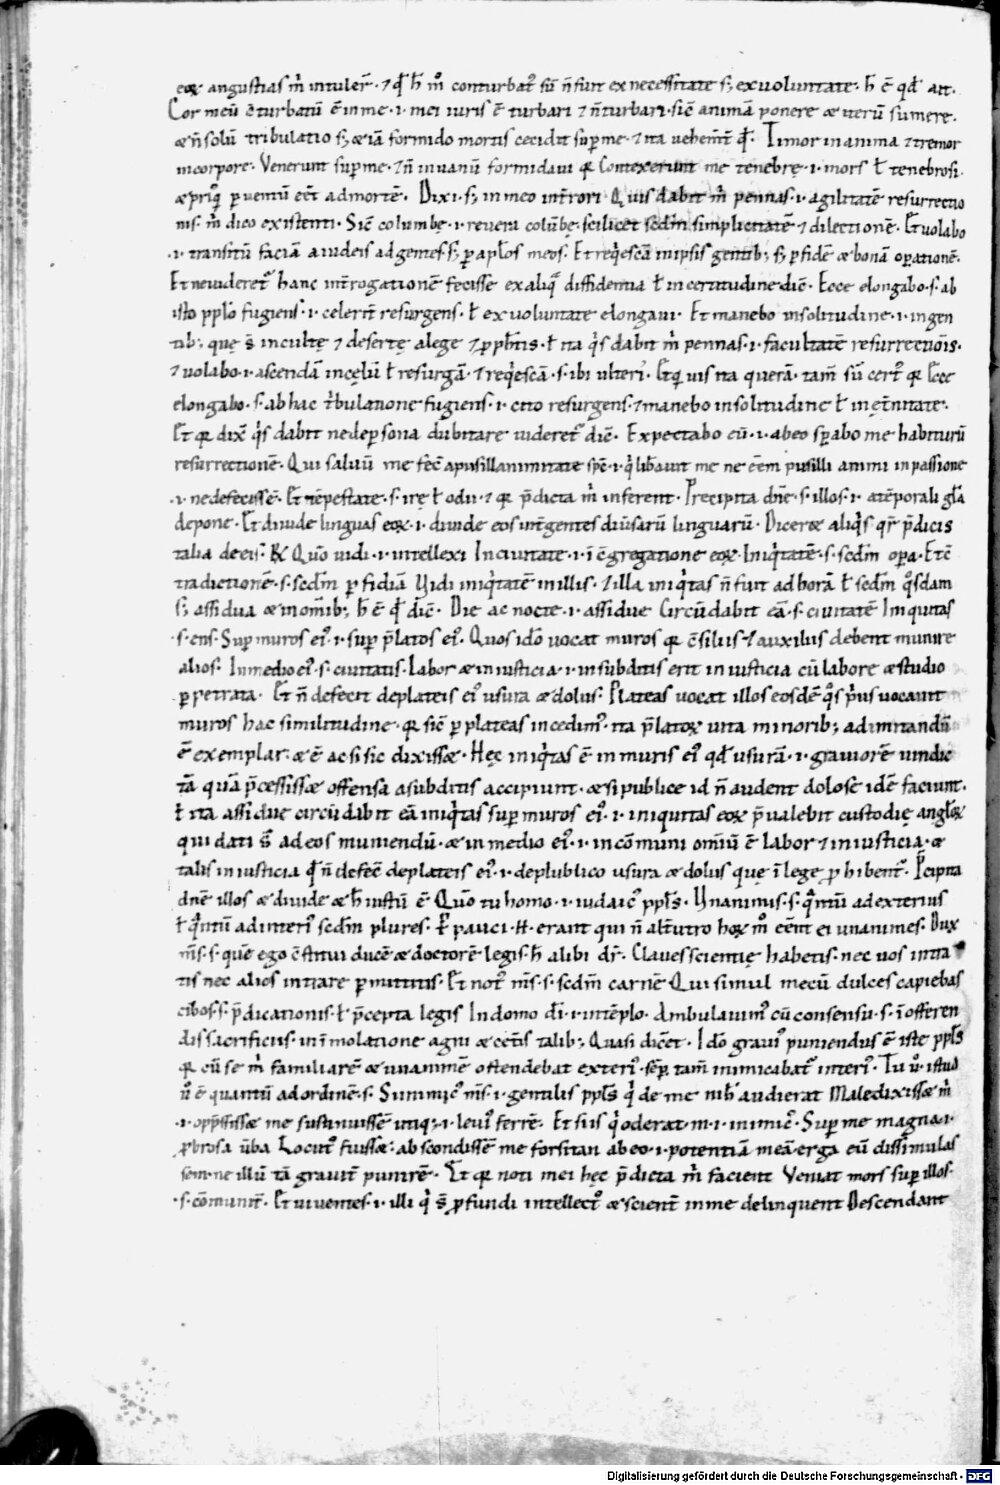 eoꝝ angustias m̄ intuler̄· ⁊ qđ h̄ m̊ conturbat᷒ sū n̄ fuit ex necessitate sꝫ ex voluntate· h̄ ē qđ ait·
Cor meū c̄turbatū ē in me·i· mei iuris ē turbari ⁊ n̄ turbari· sic̄ animā ponere & iterū sumere·
& n̄ solū tribulatio sꝫ & iā formido mortis cecidit sup̄ me· ⁊ ita vehem̄t̄ qđ· Timor in anima ⁊ tremor
in corpore· Venerunt sup̄ me· ⁊ n̄ in vanū formidavi qꝛ Contexerunt me tenebrę·i· mors ł tenebrosi·
& p̄riꝰq̄ perventū eēt ad mortē· Dixi·sꝫ in meo int̄rori· Quis dabit m̄ pennas·i· agilitatē resurrectio
nis· m̄ dico existenti· Sic̄ columbę·i· revera colūbę· scilicet scd̄m simplicitatē ⁊ dilectionē· Et volabo
·i· transitū faciā a iudeis ad gentes·sꝫ ꝑ ap̄los meos· Et req̄escā in ipsis gentibꝫ sꝫ ꝑ fidē & bonā oꝑationē·
Et ne videret᷒ hanc int̄rogationē fecisse ex aliq̄ diffidentia ł incertitudine dic̄· Ecce elongabo·s· ab
isto pplo fugiens·i· celerit̄ resurgens· ł ex voluntate elongavi· Et manebo in solitudine·i· in gen
tibꝫ que s̄ incultę ⁊ desertę a lege ⁊ ꝓph̄tis· ł ita q̄s dabit m̄ pennas·i· facultatē resurrectiōis·
⁊ volabo·i· ascendā in cęlū ł resurgā· ⁊ req̄escā·s· ibi ulteri᷒· Et qꝛvis ita querā· tam̄ sū cert᷒ qꝛ Ecce
elongabo·s· ab hac tr̄bulatione fugiens·i· cito resurgens· ⁊ manebo in solitudine ł in ęt̄nitate·
Et qꝛ dix̄ q̄s dabit ne de ꝑsona dubitare videret᷒ dic̄· Expectabo eū·i· ab eo sꝑabo me habiturū
resurrectionē· Qui salvū me fec̄ a pusillanimitate sp̄c·i· q̄ lib̄avit me ne eēm pusilli animi in passione
·i· ne defecissē· Et tēpestate·s· irę ł odii· ⁊ qꝛ p̄dicta m̄ inferent· Precipita dn̄e·s· illos·i· a tēporali gl̄a
depone· Et divide linguas eoꝝ·i· divide eos int̄ gentes div̄sarū linguarū· Diceret aliq̄s qr̄ p̄dicis
talia de eis· R Qm̄ vidi·i· intellexi In civitate·i· i c̄gregatione eoꝝ· Iniq̄tatē·s· scd̄m opa· Et c̄
tradictionē·s· scd̄m ꝑfidiā Vidi iniq̄tatē in illis· ⁊ illa iniq̄tas n̄ fuit ad horā ł scd̄m q̄sdam
sꝫ assidua & in om̄ibꝫ h̄ ē qđ dic̄· Die ac nocte·i· assidue Circūdabit eā·s· civitatē Iniquitas
·s· ens· Sup̄ muros ei᷒·i· sup̄ p̄latos ei᷒· Quos ido vocat muros qꝛ c̄siliis ⁊ auxiliis debent munire
alios· In medio ei᷒·s· civitatis· Labor & iniusticia·i· in subditis erit iniusticia cū labore & studio
ꝑpetrata· Et n̄ defecit de plateis ei᷒ usura & dolus· Plateas vocat illos eosdē q̄s p̄us vocavit
muros hac similitudine· qꝛ sic̄ ꝑ plateas incedim᷒· ita p̄latoꝝ vita minoribꝫ ad imitandū
ē exemplar· & ē ac si sic dixisset· Hęc iniq̄tas ē in muris ei᷒ qđ usurā·i· graviorē vindic
tā quā p̄cessisset offensa a subditis accipiunt· & si publice id n̄ audent dolose idē faciunt·
ł ita assidue circūdabit eā iniq̄tas sup̄ muros ei᷒·i· iniquitas eoꝝ p̄valebit custodię angl̄oꝝ
qui dati s̄ ad eos muniendū· & in medio ei᷒·i· in cōmuni omniū ē labor ⁊ iniusticia· &
talis iniusticia qđ n̄ defec̄ de plateis ei᷒·i· de publico usura & dolus quę i lege ꝓhibent᷒· P̄cipita
dn̄e illos & divide & h̄ iustū ē Qm̄ tu homo·i· iudaic᷒ ppl̄s· Unanimis·s· q̄ntū ad exterius
ł q̄ntū ad interi᷒ scd̄m plures· erant qui n̄ alt̄utro hoꝝ m̊ eēnt ei unanimes· Dux
m̄s·s· quē ego c̄stitui ducē & doctorē legis· h̄ alibi dr̄· Claves scientię habetis· nec vos intra
tis nec alios intrare ꝑmittitis· Et not᷒ m̄s·s· scd̄m carnē Qui simul mecū dulces capiebas
cibos·s· p̄dicationis· ł p̄cepta legis In domo dī·i· in tēplo· Ambulavim᷒ cū consensu·s· i offeren
dis sacrificiis· in imolatione agni & cęt̄is talibꝫ Quasi dic̄et· Ido gravi᷒ puniendus ē iste ppl̄s
qꝛ cū se m̄ familiarē & unanimē ostendebat exteri᷒· sēp tam̄ inimicabat᷒ interi᷒· Tu v̊ istud
v᷒ ē quantū ad ordinē·s· Si inimic᷒ m̄s·i· gentilis ppl̄s q̄ de me nih̄ audierat Maledixisset m̄
·i· opp̄ssisset me sustinuissē utiqꝫ·i· levi᷒ ferrē· Et si is q̄ oderat m·i· inimic᷒· Sup̄ me magna·i·
ꝓbrosa v̄ba Locut᷒ fuisset· abscondissē me forsitan ab eo·i· potentiā meā erga eū dissimulas
sem· ne illū tā gravit̄ punirē· Et qꝛ noti mei hęc p̄dicta m̄ facient Veniat mors sup̄ illos·
·s· cōmunit̄· Et viventes·i· illi q̄ s̄ ꝓfundi intellect᷒ & scient̄ in me delinquent Descendant
Digitalisierung gefördert durch die Deutsche Forschungsgemeinschaft - DFG